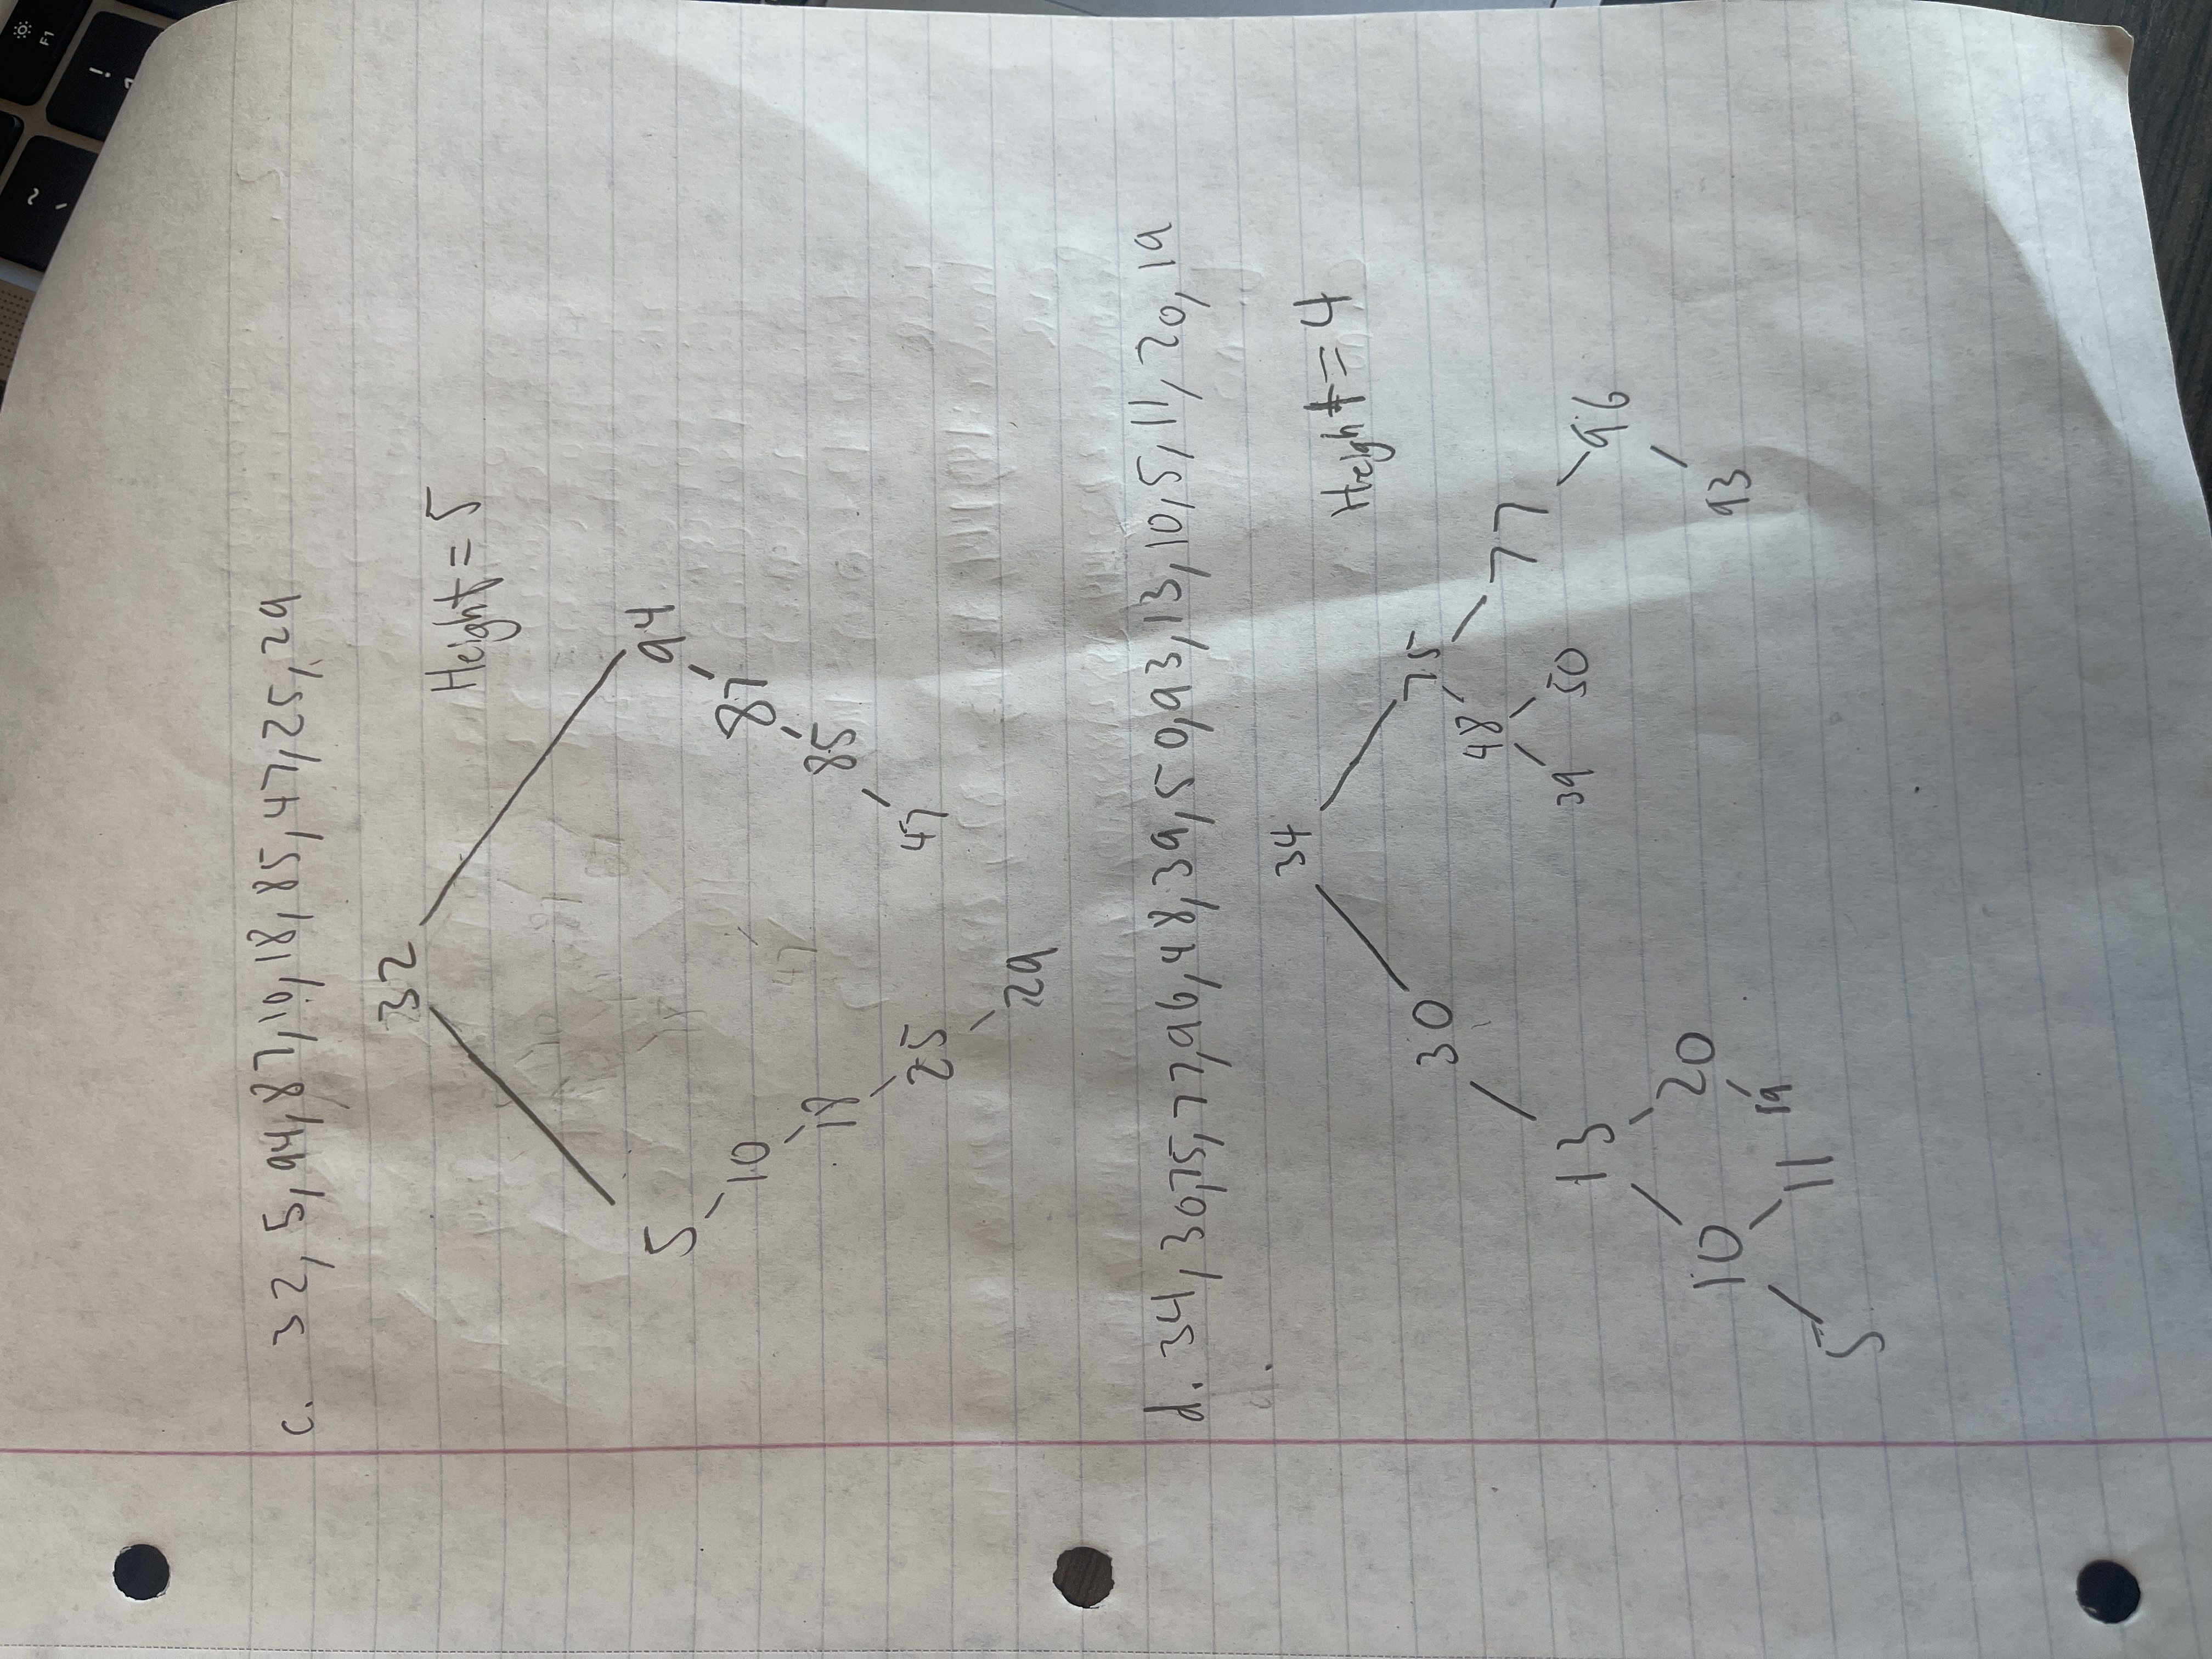 ~
`
F1
!
c. 32, 5, 94, 87, 10, 18, 85, 47, 25, 29
32
Height = 5
5 94
10 87
18 85
25 47
29
d. 34, 30, 75, 77, 96, 48, 39, 50, 93, 13, 10, 5, 11, 20, 19
34
Height = 4
30 75
48
77
13 39 50 96
10 20 93
5 11 19